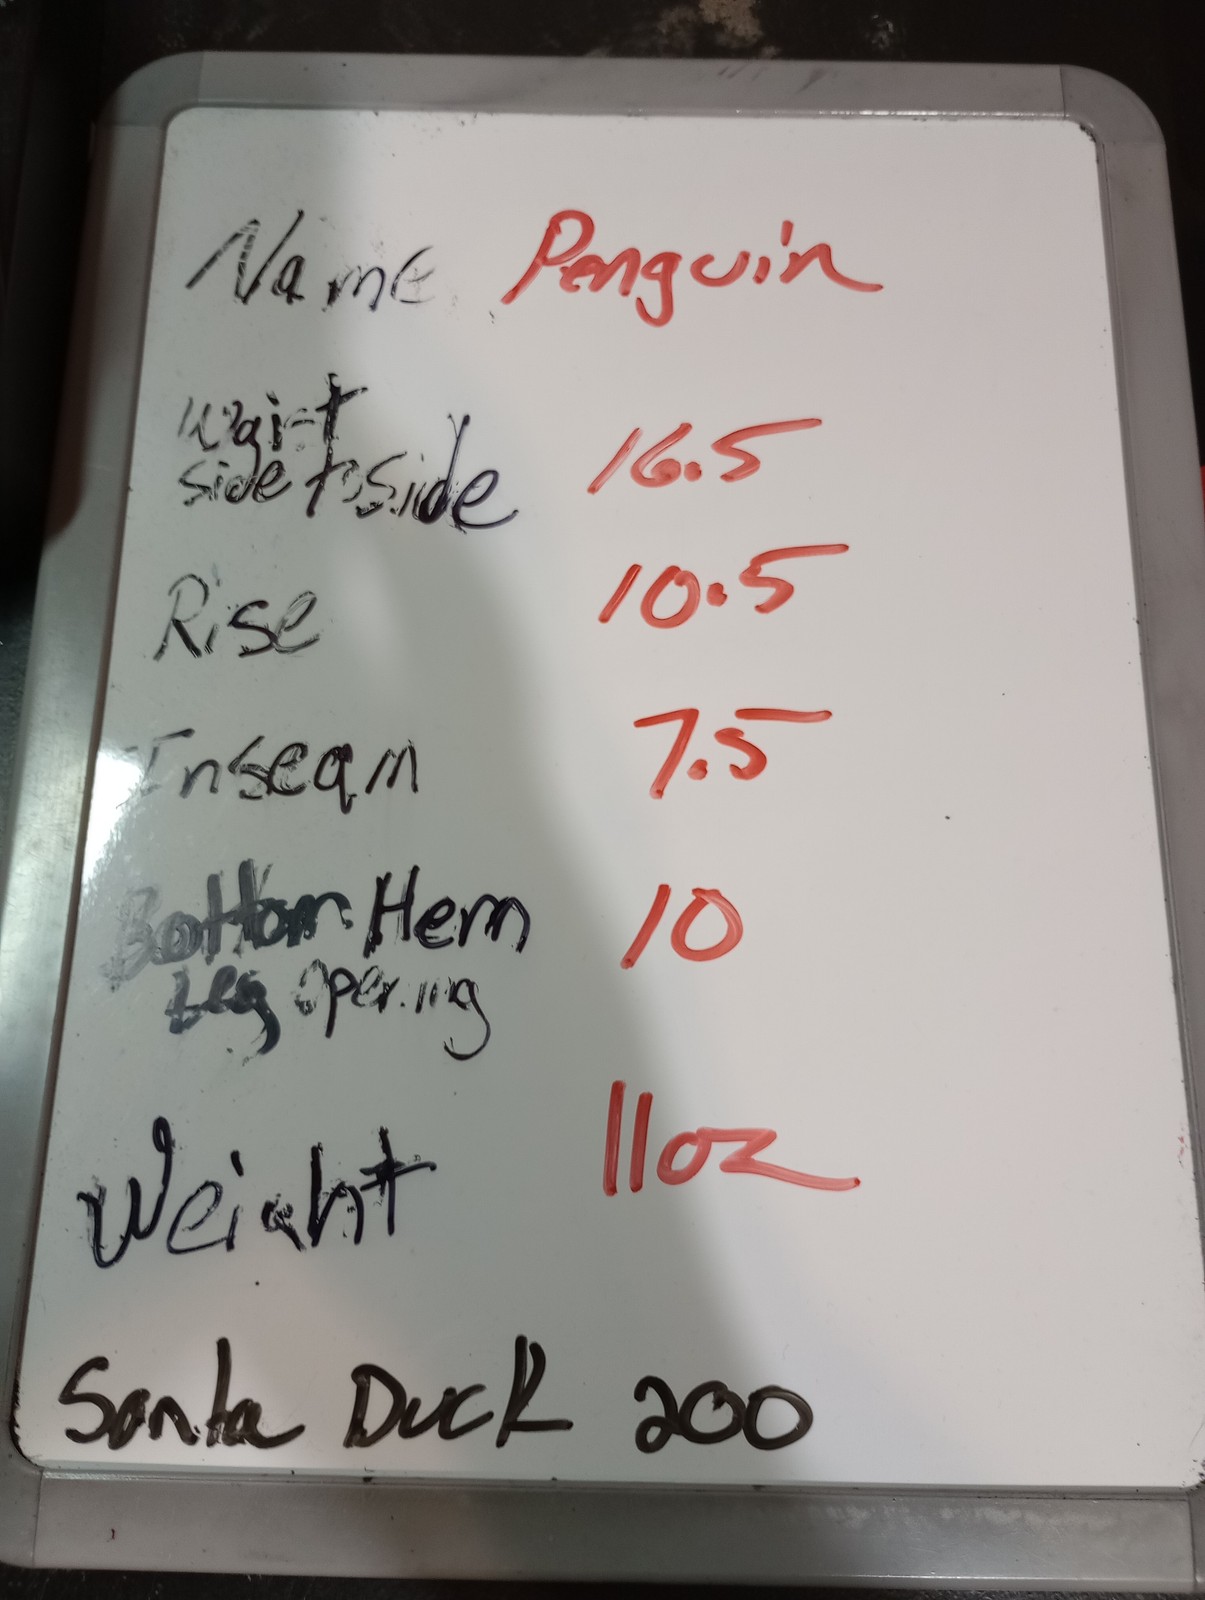 Name Penguin
Waist
side to side 16.5
Rise 10.5
Inseam 7.5
Bottom Hem 10
Leg Opening
Weight 11oz
Santa Duck 200